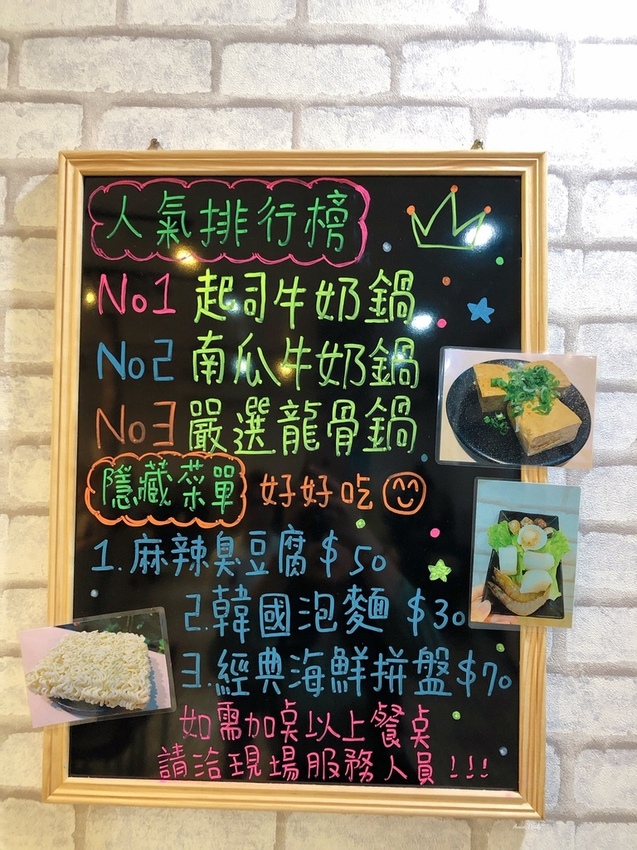 人氣排行榜
No1 起司牛奶鍋
No2 南瓜牛奶鍋
No3 嚴選龍骨鍋
隱藏菜單 好好吃
1.麻辣臭豆腐 $50
2.韓國泡麵 $30
3.經典海鮮拼盤 $70
如需加桌以上餐桌
請洽現場服務人員!!!